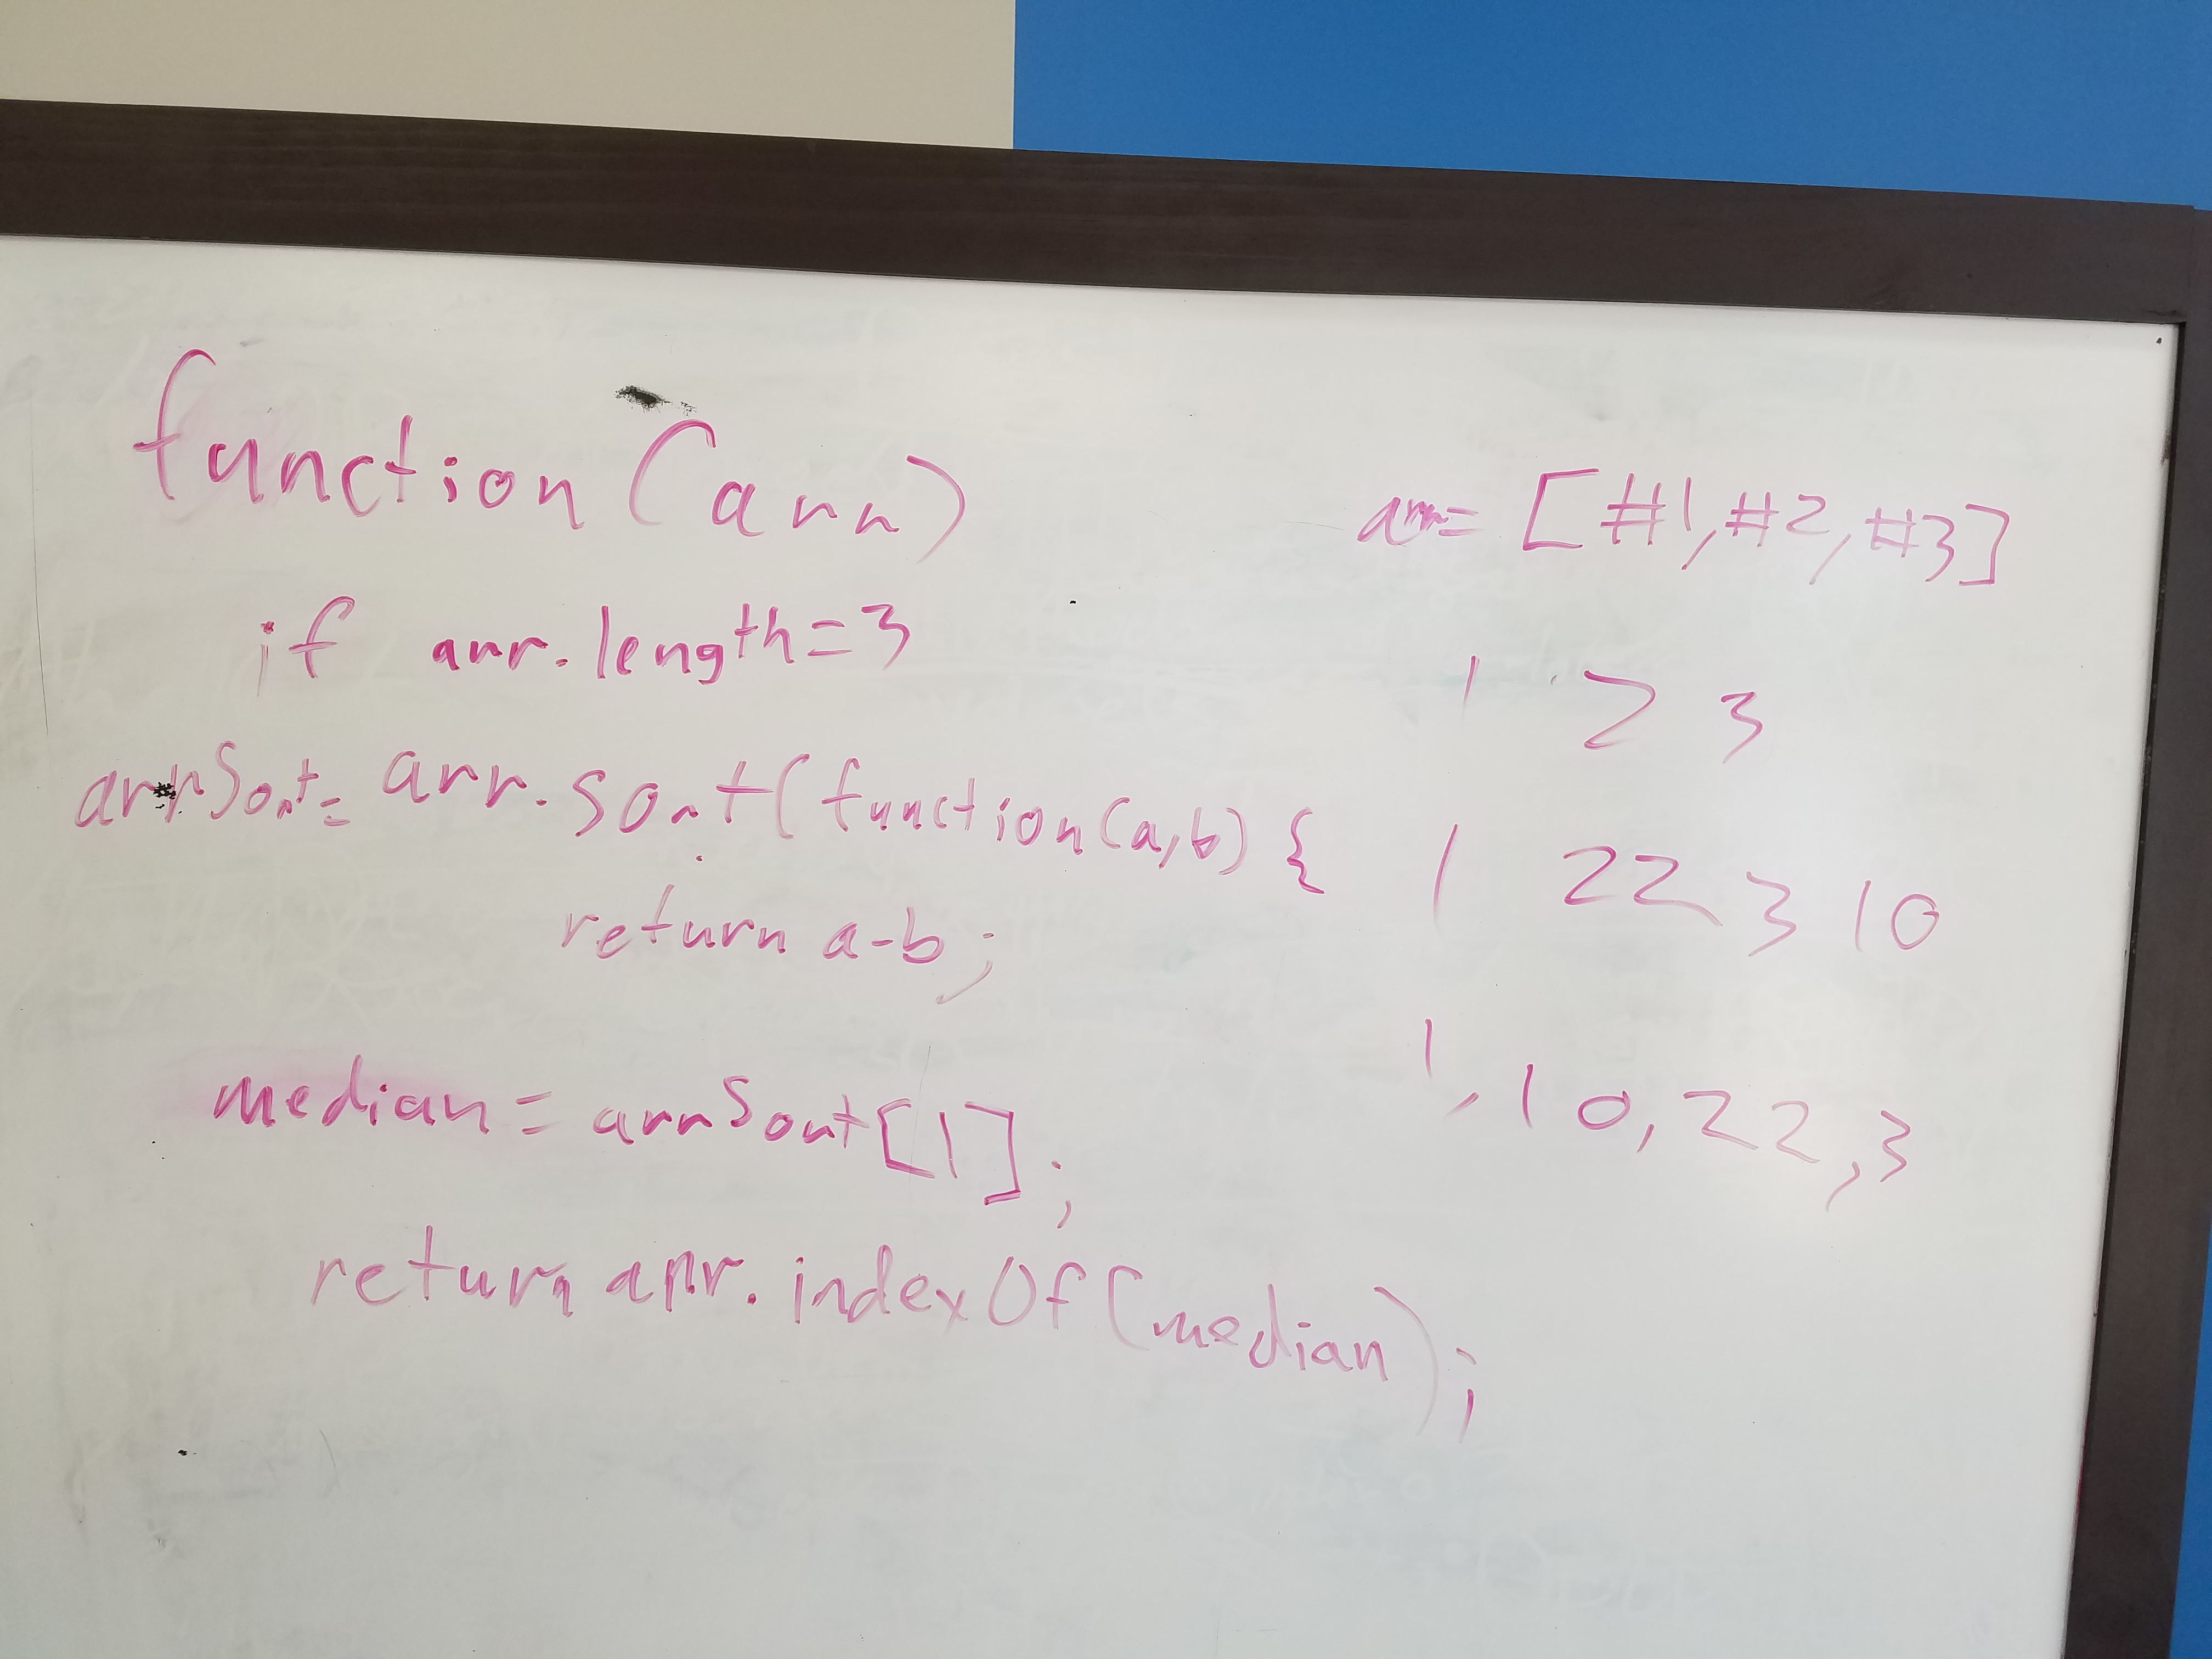 function (arr)
if arr.length=3
arrSort= arr.sort(function(a,b) {
return a-b;
median = arrSort[1];
return arr.indexOf(median);
arr= [#1,#2,#3]
1 2 3
1 22 3 10
1,10,22,3